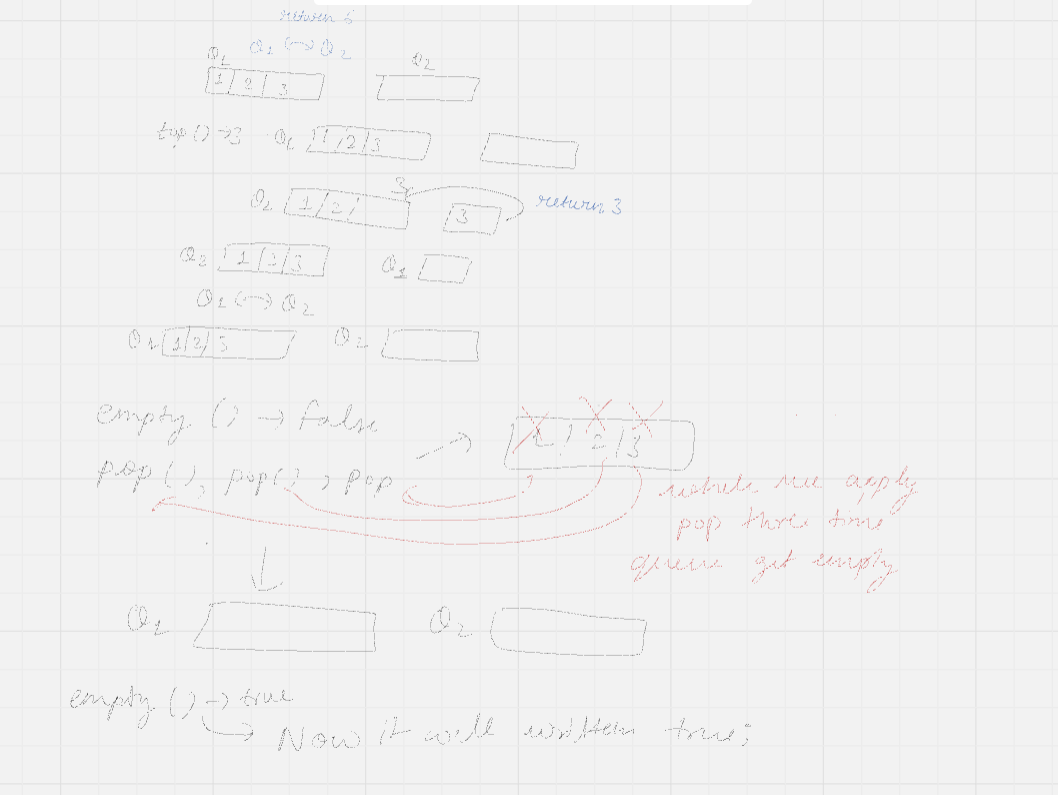 return 5
Q1 ↔ Q2
Q1 Q2
1 2 3
top() → 3 Q1 1 2 3
3
Q2 1 2 3 return 3
Q2 1 2 3 Q1
Q1 ↔ Q2
Q1 1 2 3 Q2
empty () → false
1 2 3
pop(), pop(), pop
when we apply
pop three time
queue get empty
Q1 Q2
empty () → true
Now it will written true;